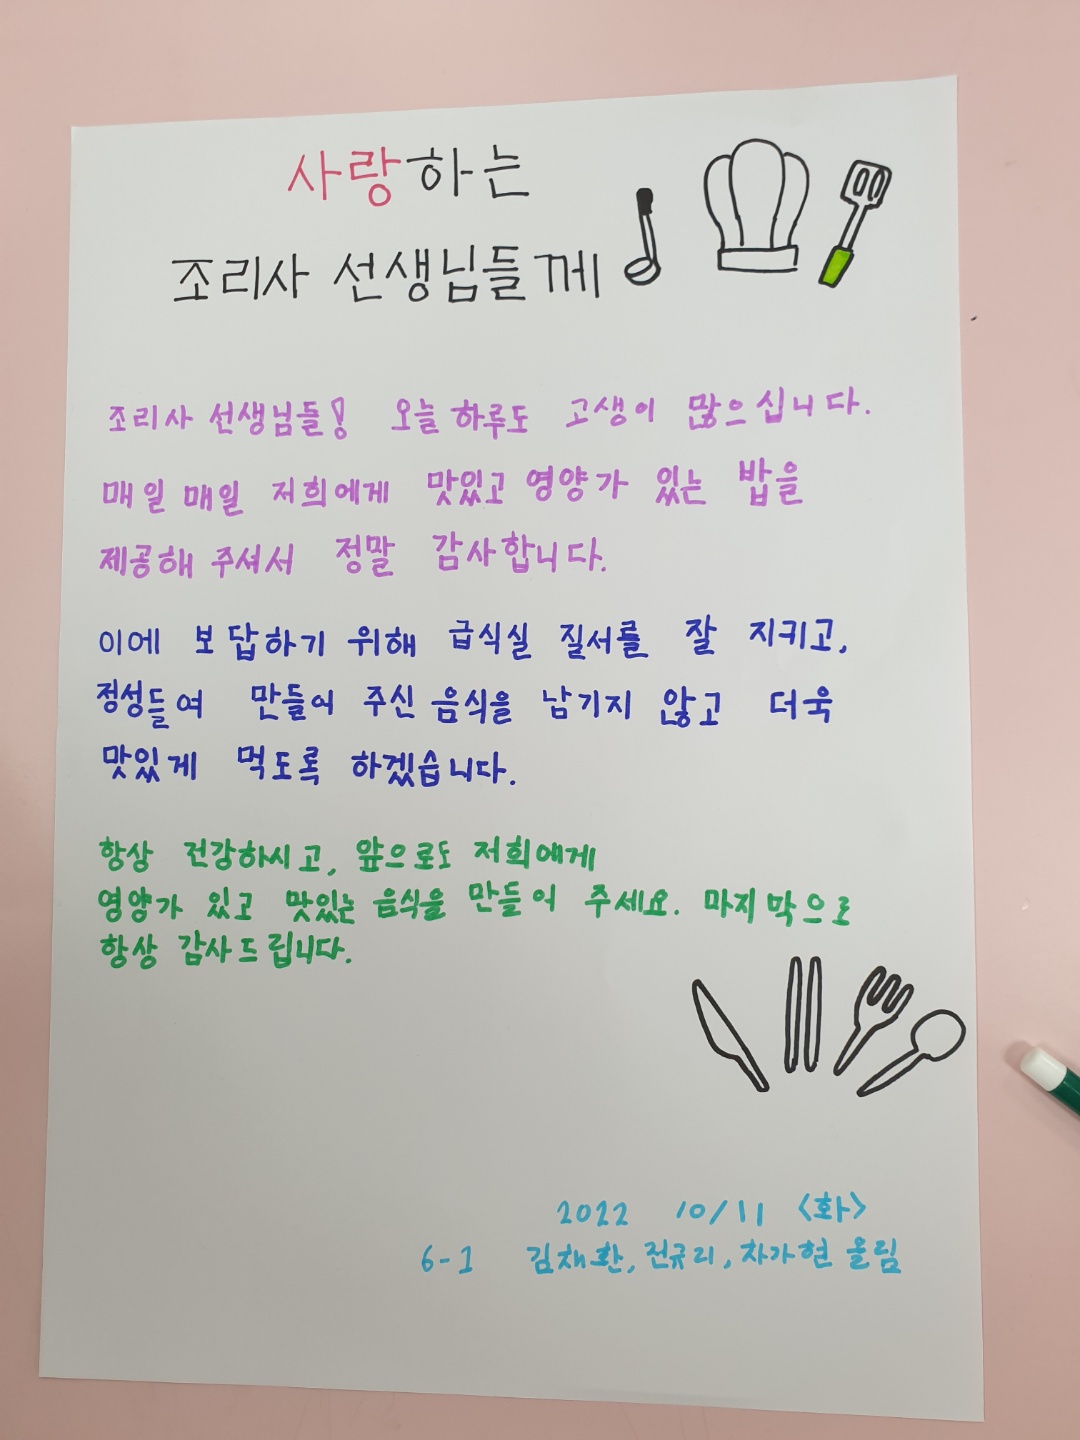 사랑하는
조리사 선생님들께
조리사 선생님들! 오늘 하루도 고생이 많으십니다.
매일 매일 저희에게 맛있고 영양가 있는 밥을
제공해 주셔서 정말 감사합니다.
이에 보답하기 위해 급식실 질서를 잘 지키고,
정성들여 만들어 주신 음식을 남기지 않고 더욱
맛있게 먹도록 하겠습니다.
항상 건강하시고, 앞으로도 저희에게
영양가 있고 맛있는 음식을 만들어 주세요. 마지막으로
항상 감사드립니다.
2022 10/11 <화>
6-1 김채환, 전규리, 차가현 올림